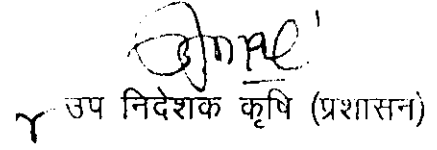 उप निदेशक कृषि (प्रशासन)